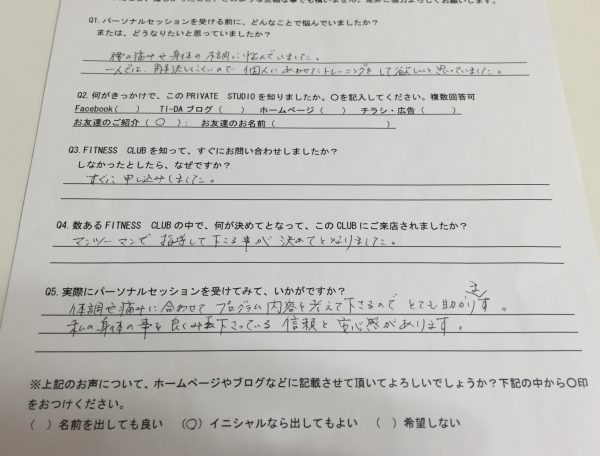 Q1.パーソナルセッションを受ける前に、どんなことで悩んでいましたか?
または、どうなりたいと思っていましたか?
腰の痛みや身体の不調に悩んでいました。
一人では、解決しにくいので 個人にあわせたトレーニングをして欲しいと思っていました。
Q2.何がきっかけで、このPRIVATE STUDIOを知りましたか。〇を記入してください。複数回答可
Facebook( ) TI-DAブログ( ) ホームページ( ) チラシ・広告( )
お友達のご紹介(〇): お友達のお名前( )
Q3.FITNESS CLUBを知って、すぐにお問い合わせしましたか?
しなかったとしたら、なぜですか?
すぐに申し込みしました。
Q4.数あるFITNESS CLUBの中で、何が決めてとなって、このCLUBにご来店されましたか?
マンツーマンで 指導して下さる事が 決めてとなりました。
Q5.実際にパーソナルセッションを受けてみて、いかがですか?
体調や痛みに合わせて プログラム内容を考えて下さるので とても助かります。
私の身体の事を良く下さっている 信頼と安心感があります。
※上記のお声について、ホームページやブログなどに記載させて頂いてよろしいでしょうか?下記の中から〇印
をおつけください。
( )名前を出しても良い (〇)イニシャルなら出してもよい ( )希望しない